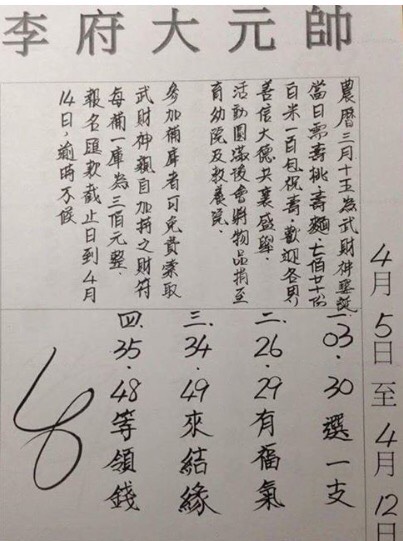 李府大元帥
4月5日至4月12日
農曆三月十五為武財神聖誕
當日需壽桃.壽麵.七佰廿十份
百米一百包祝壽.歡迎各界
善信大德共襄盛舉.
活動圓滿後會將物品捐至
育幼院及教養院.
參加補庫者可免費索取
武財神親自加持之財符
每補一庫為三佰元整.
報名匯款截止日到4月
14日,逾時不候
一.03.30選一支
二.26.29有福氣
三.34.49來結緣
四.35.48等領錢